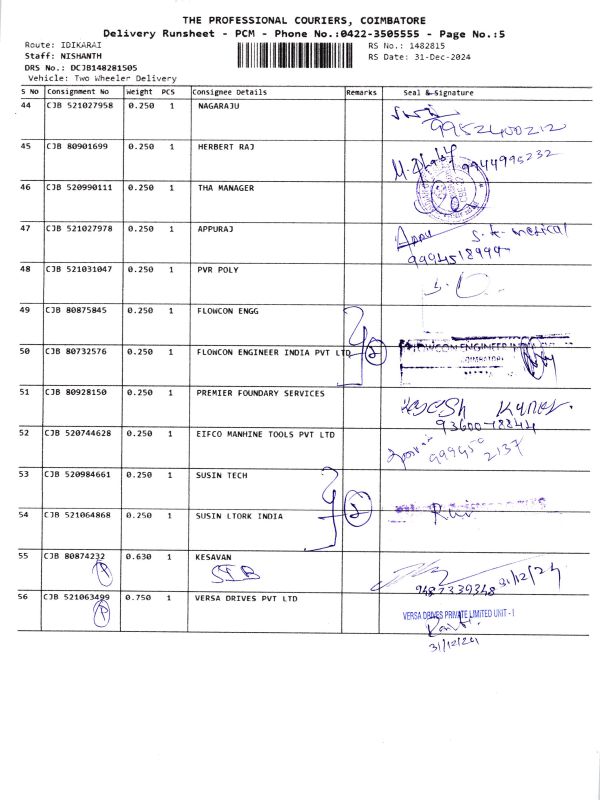 THE PROFESSIONAL COURIERS, COIMBATORE
Delivery Runsheet - PCM - Phone No.:0422-3505555 - Page No.:5
Route: IDIKARAI RS No.: 1482815
Staff: NISHANTH RS Date: 31-Dec-2024
DRS No.: DCJB148281505
Vehicle: Two Wheeler Delivery
S No Consignment No Weight PCS Consignee Details Remarks Seal & Signature
44 CJB 521027958 0.250 1 NAGARAJU
9952400212
45 CJB 80901699 0.250 1 HERBERT RAJ
9944995232
46 CJB 520990111 0.250 1 THA MANAGER
47 CJB 521027978 0.250 1 APPURAJ Appu S.K. medical
9994518994
48 CJB 521031047 0.250 1 PVR POLY
49 CJB 80875845 0.250 1 FLOWCON ENGG
50 CJB 80732576 0.250 1 FLOWCON ENGINEER INDIA PVT LTD 2 FLOWCON ENGINEER INDIA
COIMBATORE
51 CJB 80928150 0.250 1 PREMIER FOUNDARY SERVICES
93600 78844
52 CJB 520744628 0.250 1 EIFCO MANHINE TOOLS PVT LTD
99945 2137
53 CJB 520984661 0.250 1 SUSIN TECH
54 CJB 521064868 0.250 1 SUSIN LTORK INDIA 2
55 CJB 80874232 0.630 1 KESAVAN
P 9487339348 31/12/24
56 CJB 521063499 0.750 1 VERSA DRIVES PVT LTD
P VERSA DRIVES PRIVATE LIMITED UNIT - I
31/12/24